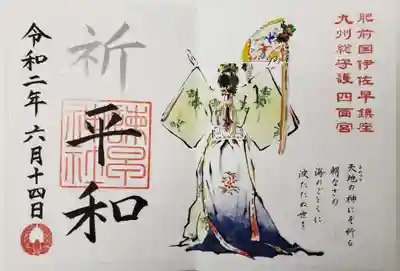 肥前国伊佐早鎮座
九州総守護四面宮
天地の神にぞ祈る
朝なぎの
海のごとくに
波たたぬ世を
祈
平和
令和二年 六月十四日